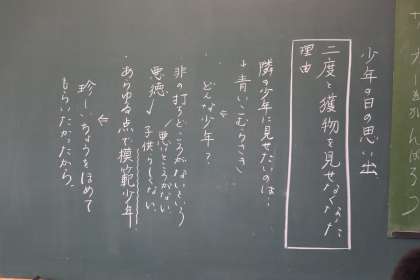 少年の日の思い出
二度と獲物を見せなくなった
理由
隣の少年に見せたいのは…
↓青いこむらさき
どんな少年?
非の打ちどころがないという
悪徳
/悪いところがない
子供らしくない
あらゆる点で模範少年
珍しいちょうをほめて
もらいたかったから。